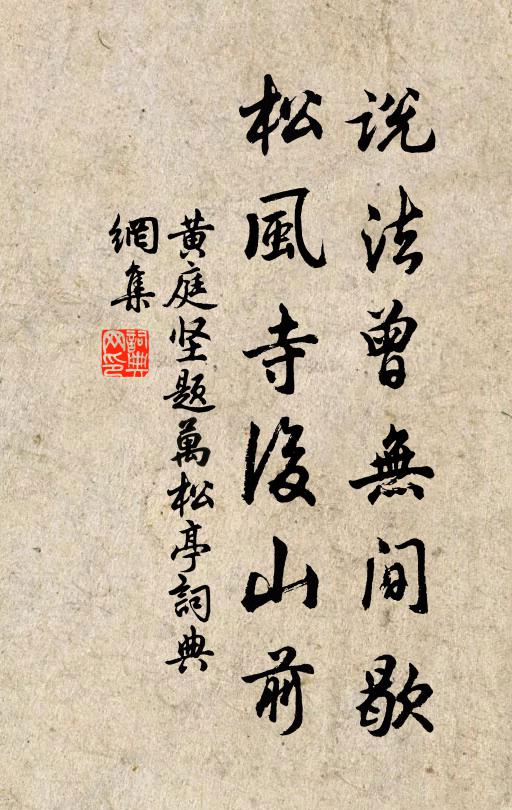 说法曾無间歇
松風寺後山前
黄庭坚题萬松亭詞典
網集
詞典
网印